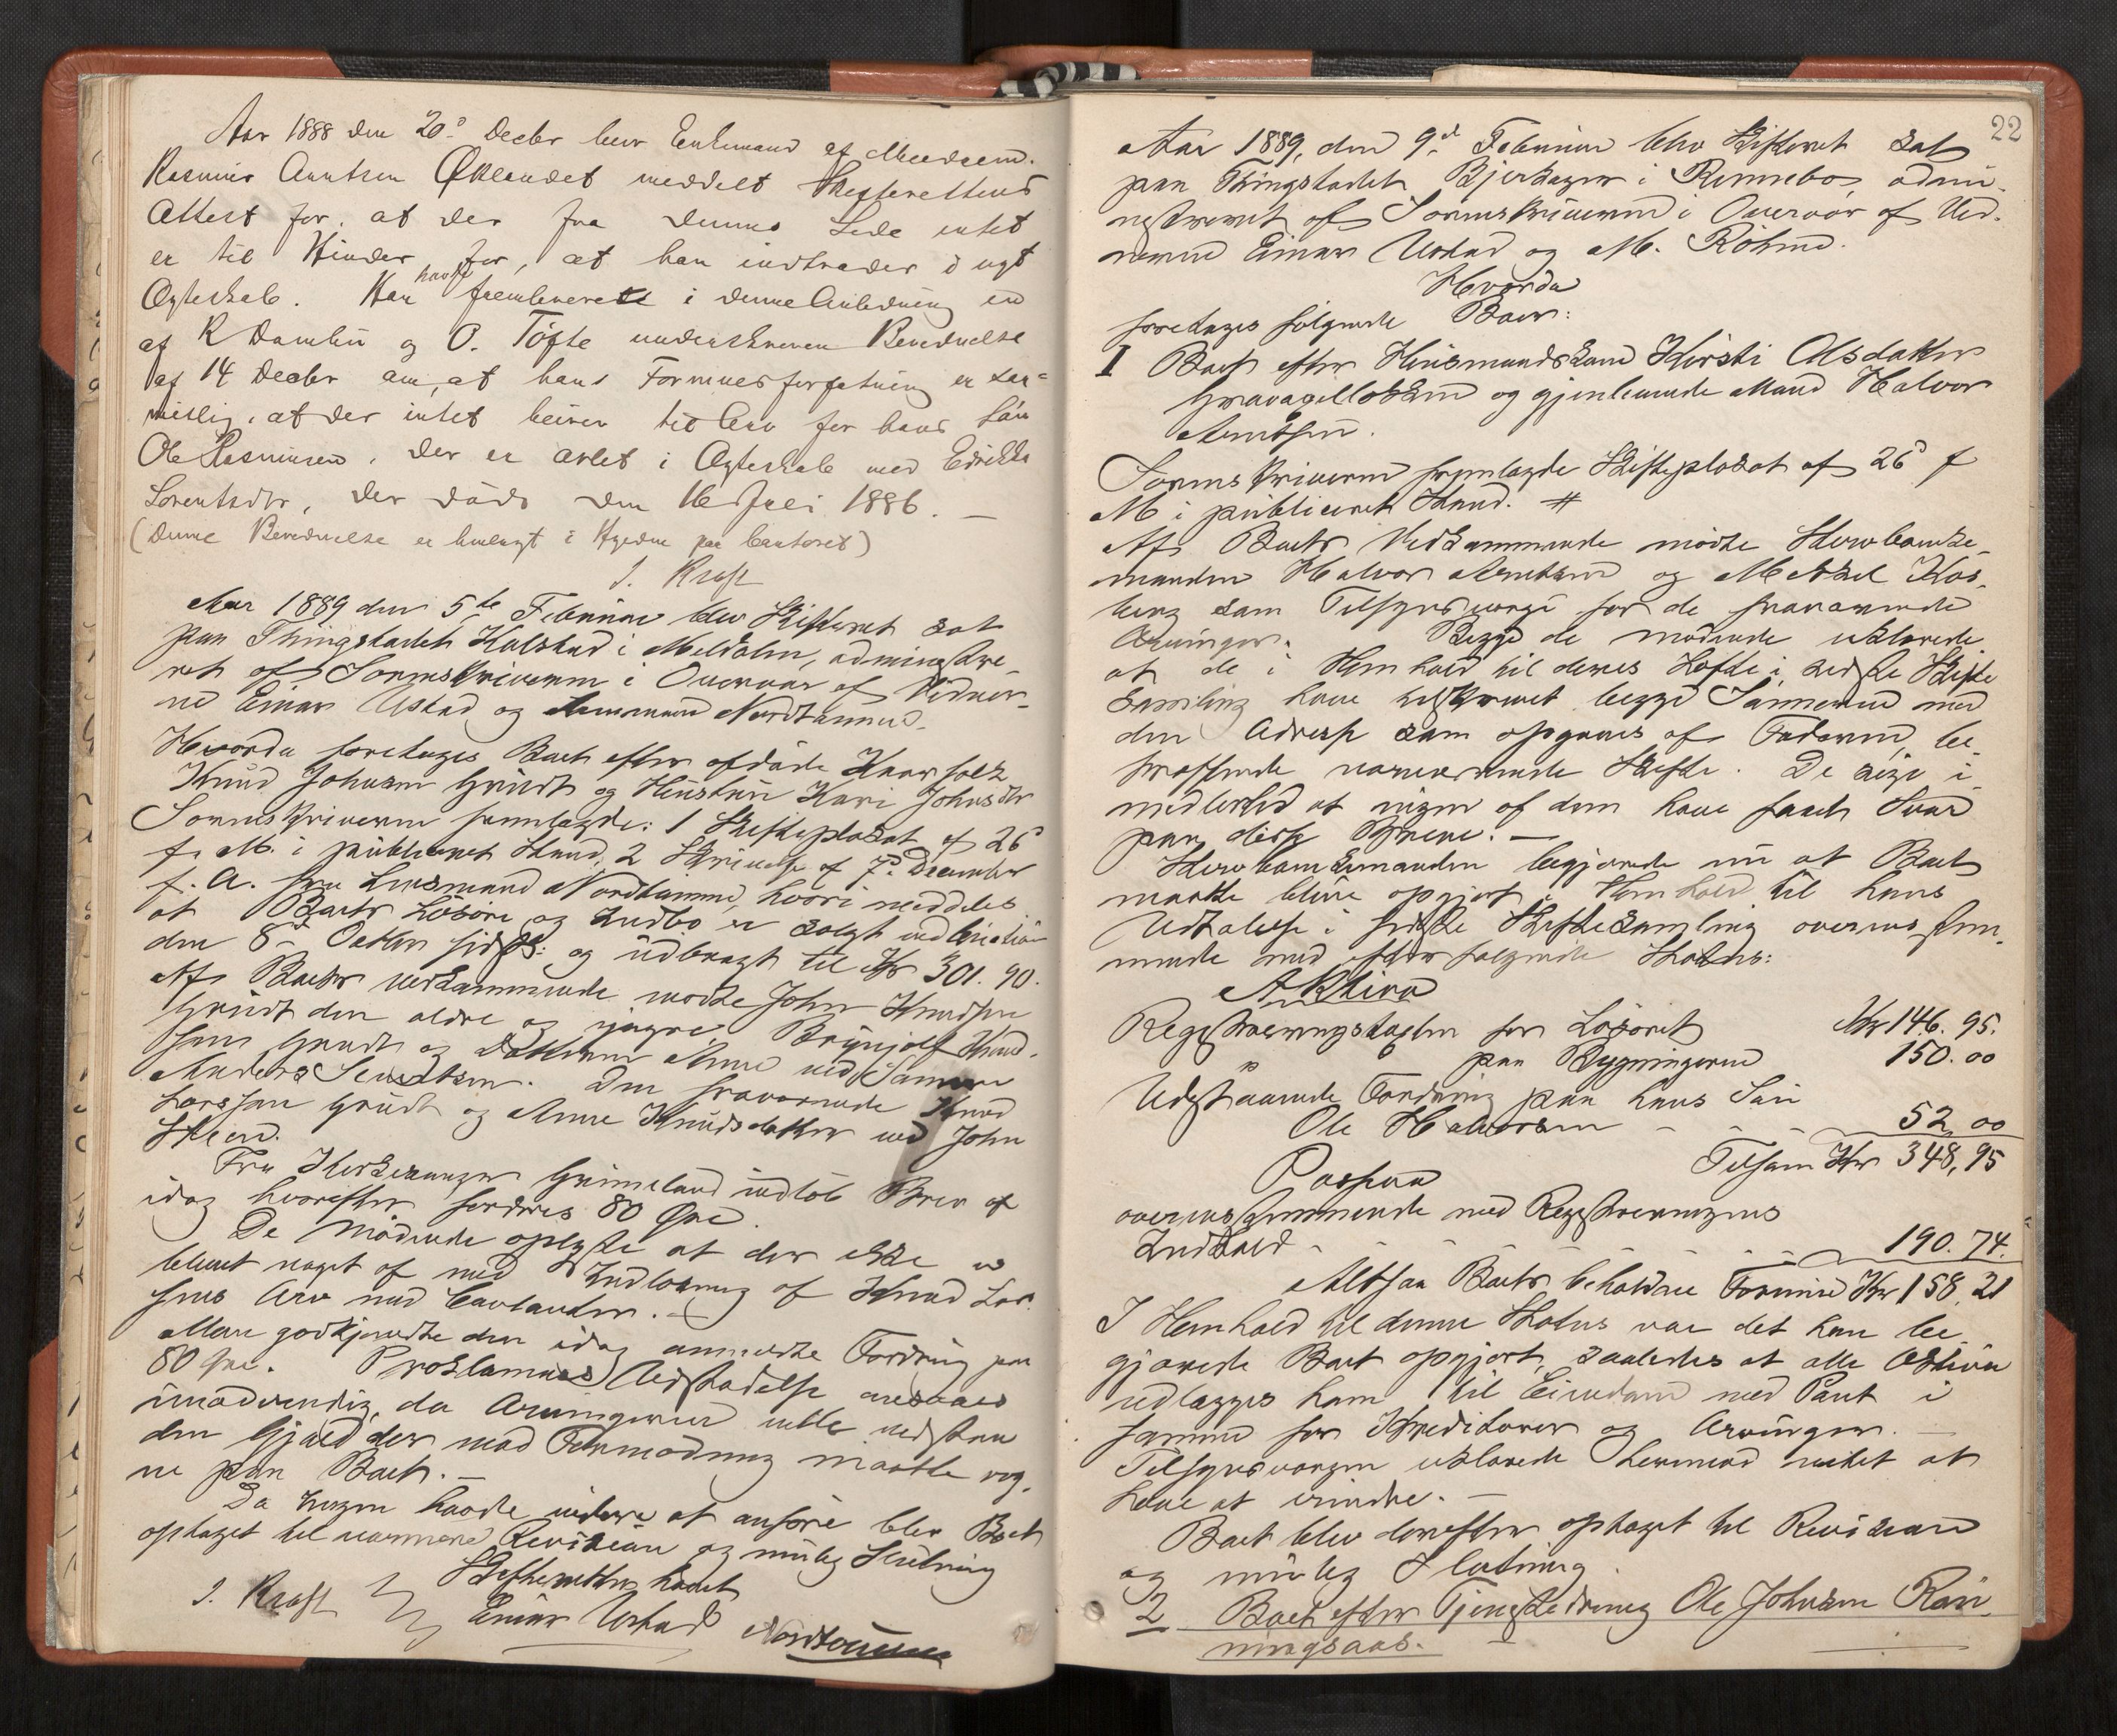 Aar 1888 den 20de Decbr blev Enkemand af Meldalen
Rasmus Arntsen Øklandet meddelt Skifterettens
Attest for, at der fra dennes Side intet
er til Hinder for, at han indtræder i nyt
Ægteskab. Han havde fremleveret i denne Anledning en
af R Damlien og O. Tøfte underskreven Bevidnelse
af 14 Decbr om, at hans Formuesforfatning er saa=
, at der intet bliver til Arv for hans Søn
Ole Rasmussen, der er avlet i Ægteskab med
Lorentsdtr, der døde den 16 Juli 1886. —
(Denne Bevidnelse er henlagt i paa Contoret)
J. Kraft
Aar 1889 den 5te Februar blev Skifteret sat
paa Thingstedet Kalstad i Meldalen, administre-
ret af Sorenskriveren i Overvær af Vidner-
ne Einar Ustad og Nordtømme.
Hvorda foretoges Boet efter afdøde Kaarfolk
Knud Johnsen Grüdt og Hustru Kari Johnsdtr
Sorenskriveren fremlagde: 1 Skifteplakat af 26de
f. M. i publiceret Stand, 2 Skrivelse af 7de December
f. A. fra Lensmand Nordtømme, hvori meddeles
at Boets Løsøre og Indbo er solgt ved Auction
den 8de Octbr sidstl: og udbragt til Kr 301.90.
Af Boets vedkommende mødte John Knudsen
Grüdt den ældre og yngre, Brynjolf Knud-
sen Grüdt og Datteren Anne ved Sønnen
Anders Sivertsen. Den fraværende Knud
Larssen Grüdt og Anne Knudsdatter ved John
Steen.
Fra Kirkesanger Grimeland indløb Brev af
idag hvorefter fordres 80 Øre.
De Mødende oplyste at der ikke er
blevet noget af med Indløsning af Knud Lar-
sens Arv med Contanter. —
Man godkjendte den idag anmeldte Fordring paa
80 Øre. Proklamas Udstedelse ansaaes
unødvendig, da Arvingerne vilde vedstaa
den Gjæld der mod Formodning maatte veg-
ne paa Boet. —
Da Ingen havde videre at anføre blev Boet
optaget til nærmere Revision og mulig Slutning
Skifteretten hævet
J. Kraft Einar Ustad Nordtømme
22
Aar 1889, den 9de Februar blev Skifteret sat
paa Thingstedet Bjerkager i Rennebo, admi-
nistreret af Sorenskriveren i Overvær af Vid-
nerne Einar Ustad og M. Röhme.
Hvorda
foretoges følgende Boer:
I Boet efter Husmandskone Kirsti Olsdatter
og gjenlevende Mand Halvor
Arntsen.
Sorenskriveren fremlagde Skifteplakat af 26de f
M i publiceret Stand. #
Af Boets Vedkommende mødte Stervbomke-
manden Halvor Arntsen og Mekkel Kos-
berg som Tilsynsværge for de fraværende
Arvinger. Begge de mødende erklærede
at de i Henhold til deres Løfte i sidste Skifte
Samling have tilskrevet begge Sønnerne med
den Adresse som opgaves af Faderen, be-
træffende nærværende Skifte. De sige i-
midlertid at ingen af dem have faaet Svar
paa disse Breve. —
Stervbomkemanden begjærede nu at Boet
maatte blive opgjort i Henhold til hans
Udtalelse i sidste Skiftesamling overensstem-
mende med efterfølgende Status:
Aktiva
Registreringstaxten for Løsøret Kr 146. 95.
" paa Bygningerne 150.00
Udestaaende Fordring paa hans Søn
Ole Halvorsen - - - 52 00
Tilsam Kr 348,95
Passiva
overensstemmende med Registreringens
Indhold - - - - - - - 190. 74.
Altsaa Boets beholdne Formue Kr 158. 21
I Henhold til denne Status var det han be-
gjærede Boet opgjort, saaledes at alle Aktiva
udlægges ham til Eiendom med Pant i
samme for Kreditorer og Arvinger. —
Tilsynsværgen erklærede hermod intet at
have at erindre. —
Boet blev derefter optaget til Revision
og mulig Slutning.
2 Boet efter Tjenestedreng Ole Johnsen Røn-
ningsaas.